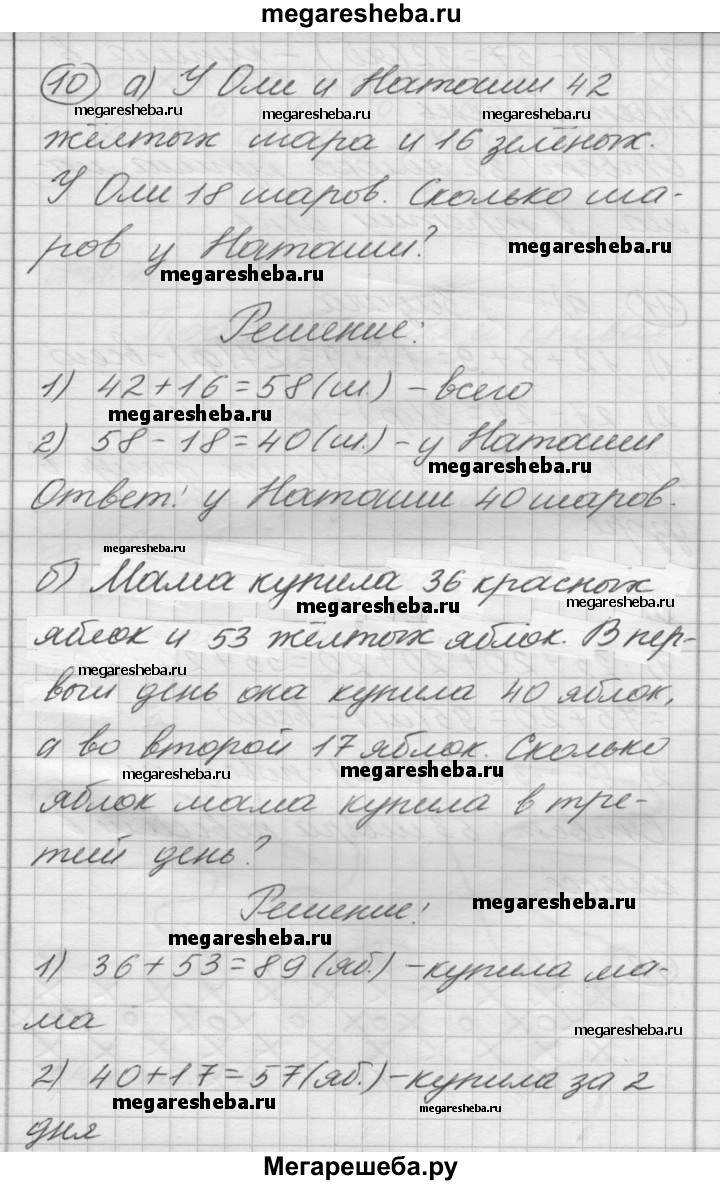 megaresheba.ru
10 а) У Оли и Наташи 42
megaresheba.ru megaresheba.ru megaresheba.ru
жёлтых шара и 16 зелёных.
У Оли 18 шаров. Сколько ша-
ров у Наташи?
megaresheba.ru
megaresheba.ru
Решение:
1) 42+16=58(ш.) - всего
megaresheba.ru
2) 58-18=40(ш.) - у Наташи
megaresheba.ru
Ответ: у Наташи 40 шаров.
megaresheba.ru
б) Мама купила 36 красных
megaresheba.ru megaresheba.ru
яблок и 53 жёлтых яблок. В пер-
megaresheba.ru
вый день она купила 40 яблок,
а во второй 17 яблок. Сколько
megaresheba.ru megaresheba.ru
яблок мама купила в тре-
тий день?
Решение:
megaresheba.ru
megaresheba.ru
1) 36+53=89(яб.) - купила ма-
ма
megaresheba.ru
2) 40+17=57(яб.) - купила за 2
megaresheba.ru megaresheba.ru
дня
Мегарешеба.ру